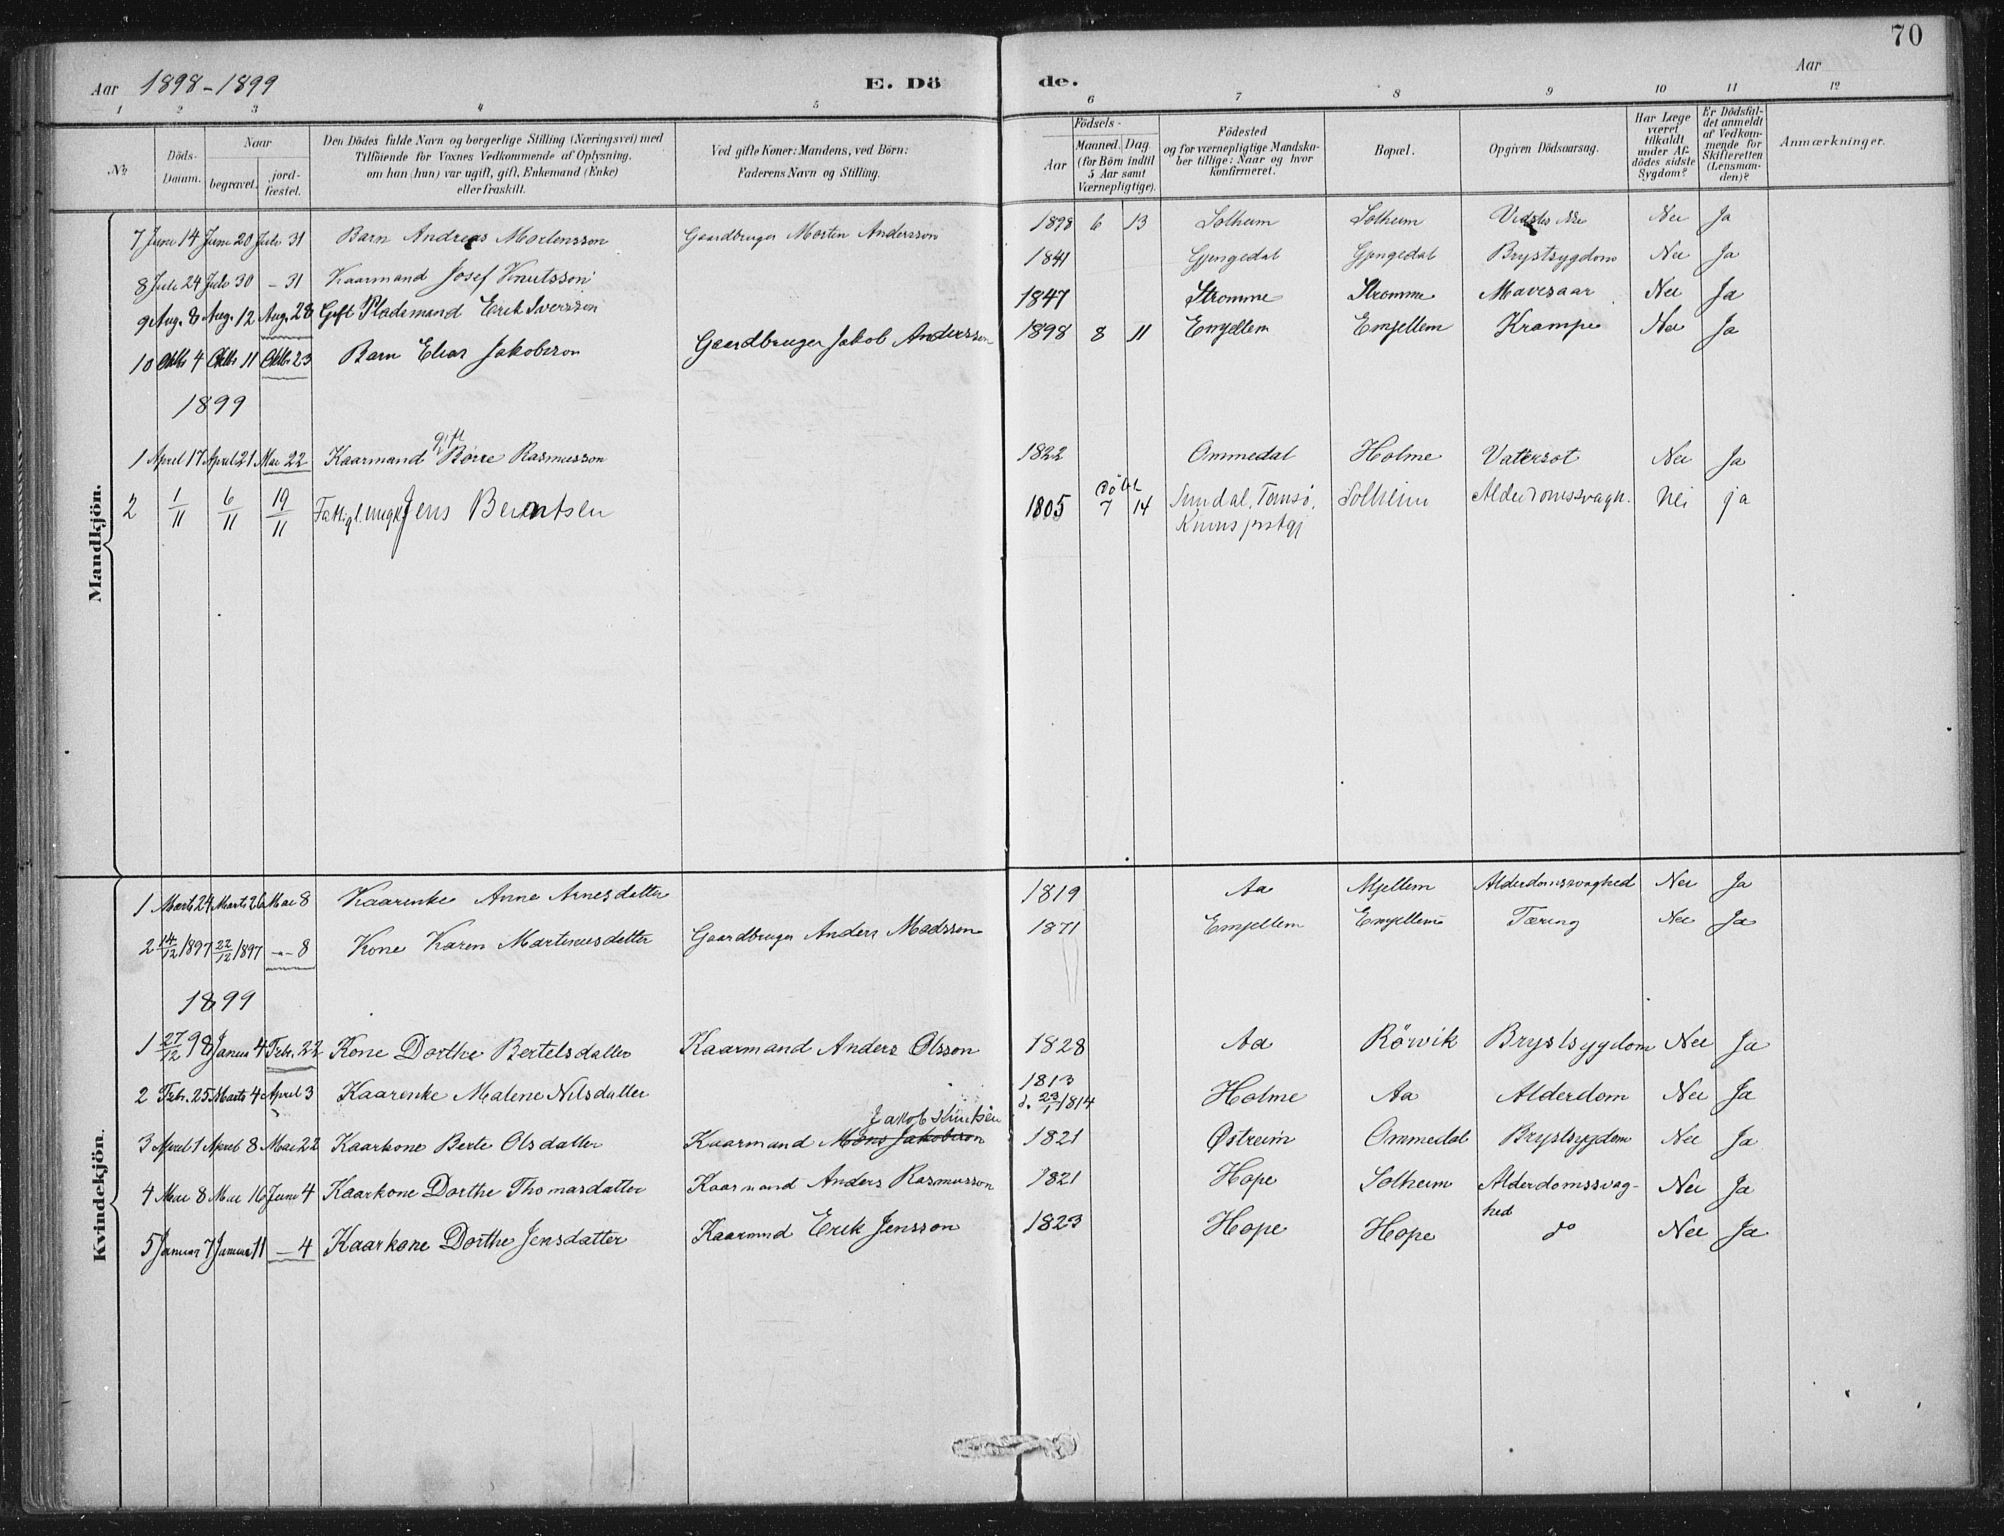 70
Aar 1898-1899 E. Dö de. Aar
1 2 3 4 5 6 7 8 9 10 11 12
№ Döds-Datum. Naar begravet. jord-fæstet. Den Dödes fulde Navn og borgerlige Stilling (Næringsvei) med Tilföiende for Voxnes Vedkommende af Oplysning, om han (hun) var ugift, gift, Enkemand (Enke) eller fraskilt. Ved gifte Koner: Mandens, ved Börn: Faderens Navn og Stilling. Födsels- Aar Maaned. Dag (for Börn indtil 5 Aar samt Værnepligtige). Födested og for værnepligtige Mandska-ber tillige: Naar og hvor konfirmeret. Bopæl. Opgiven Dödsaarsag. Har Læge været tilkaldt under Af-dödes sidste Sygdom? Er Dödsfal-det anmeldt af Vedkom-mende for Skifteretten (Lensman-den)? Anmærkninger.
Mandkjön.
7 Juni 14 Juni 20 Juli 31 Barn Andreas Mortensson Gaardbruger Morten Andersson 1898 6 13 Solheim Solheim Nei Ja
8 Juli 24 Juli 30 - 31 Kaarmand Josef Knutsson 1841 Gjengedal Gjengedal Brystsygdom Nei Ja
9 Aug. 8 Aug. 12 Aug. 28 Gift Pladsmand Erik Iversson 1847 Strømme Strømme Mavesaar Nei Ja
10 Oktb. 4 Oktb. 11 Oktb. 23 Barn Elias Jakobsson Gaardbruger Jakob Andersson 1898 8 11 Emjellem Emjellem Krampe Nei Ja
1899
gift
1 April 17 April 21 Mai 22 Kaarmand Børre Rasmusson 1822 Ommedal Holme Vattersot Nei Ja
2 1/11 6/11 19/11 Fattigl. ungk. Jens Berntsen 1805 døbt 7 14 Sundal, Kinns prstgj Solheim Alderdomssvagh. Nei ja
Kvindekjön.
1 Marts 24 Marts 26 Mai 8 Kaarenke Anne Arnesdatter 1819 Aa Mjellem Alderdomssvaghed Nei Ja
2 14/12 1897 22/12 1897 - 8 Kone Karen Martinusdatter Gaardbruger Anders Madsson 1871 Emjellem Emjellem Tæring Nei Ja
1899
1 27/12 98 Januar 4 Febr. 22 Kone Dorthe Bertelsdatter Kaarmand Anders Olsson 1828 Aa Rörvik Brystsygdom Nei Ja
1813
2 Febr. 25 Marts 4 April 3 Kaarenke Malene Nilsdatter d. 23/1 1814 Holme Aa Alderdom Nei Ja
Jakob Knutsen
3 April 1 April 8 Mai 22 Kaarkone Berte Olsdatter Kaarmand Mons Jakobsson 1821 Østreim Ommedal Brystsygdom Nei Ja
4 Mai 8 Mai 16 Juni 4 Kaarkone Dorthe Thomasdatter Kaarmand Anders Rasmusson 1821 Hope Solheim Alderdomssvag-hed Nei Ja
5 Januar 7 Januar 11 - 4 Kaarkone Dorthe Jensdatter Kaarmnd Erik Jensson 1823 Hope Hope do Nei Ja